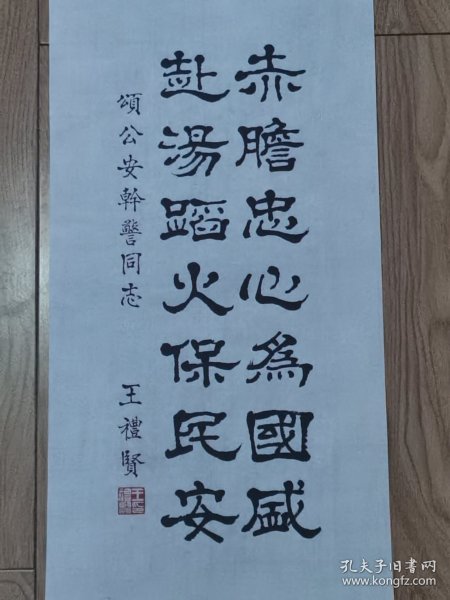 赤膽忠心為國盛
赴湯蹈火保民安
頌公安幹警同志
王禮賢
孔夫子旧书网
www.kongfz.com